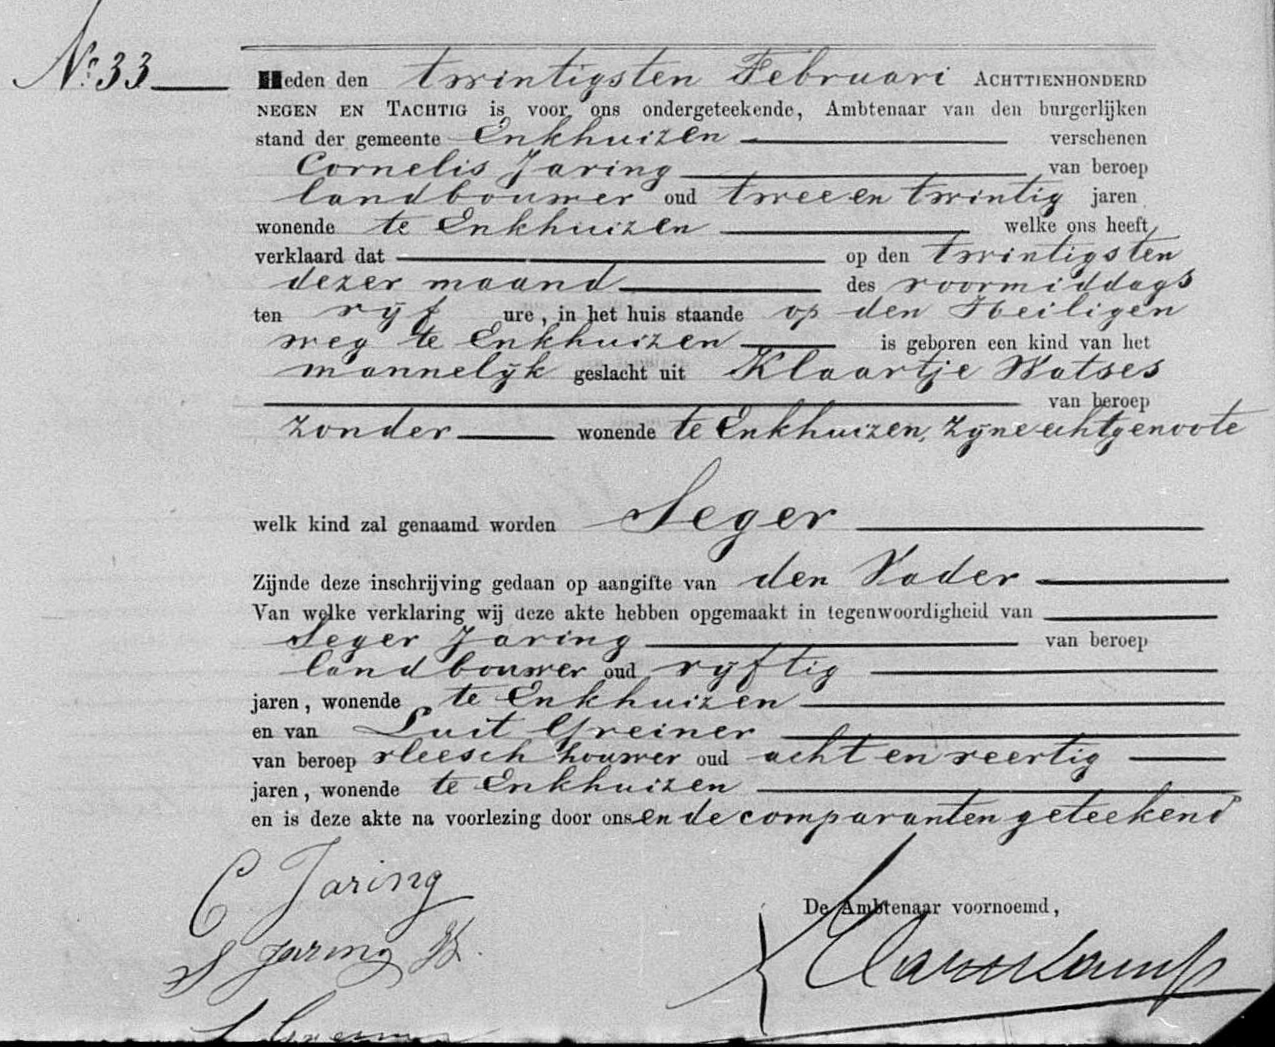 No. 33
Heden den twintigsten Februari ACHTTIENHONDERD
NEGEN EN TACHTIG is voor ons ondergeteekende, Ambtenaar van den burgerlijken
stand der gemeente Enkhuizen verschenen
Cornelis Jaring van beroep
landbouwer oud twee en twintig jaren
wonende te Enkhuizen welke ons heeft
verklaard dat op den twintigsten
dezer maand des voormiddags
ten vijf ure, in het huis staande op den Heiligen
weg te Enkhuizen is geboren een kind van het
mannelijk geslacht uit Klaartje Watses
van beroep
zonder wonende te Enkhuizen, zijne echtgenoote
welk kind zal genaamd worden Seger
Zijnde deze inschrijving gedaan op aangifte van den Vader
Van welke verklaring wij deze akte hebben opgemaakt in tegenwoordigheid van
Seger Jaring van beroep
landbouwer oud vijftig
jaren, wonende te Enkhuizen
en van Luit Greiner
van beroep vleeschhouwer oud acht en veertig
jaren, wonende te Enkhuizen
en is deze akte na voorlezing door ons en de comparanten geteekend
C Jaring
De Ambtenaar voornoemd,
S Jaring